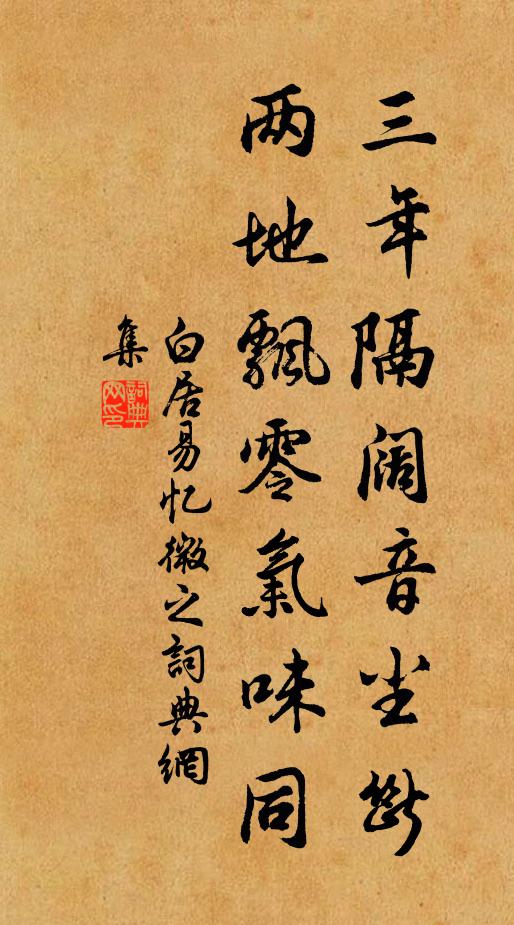 三年隔阔音尘断
两地飘零氣味同
白居易忆微之詞典網
集
詞典網印